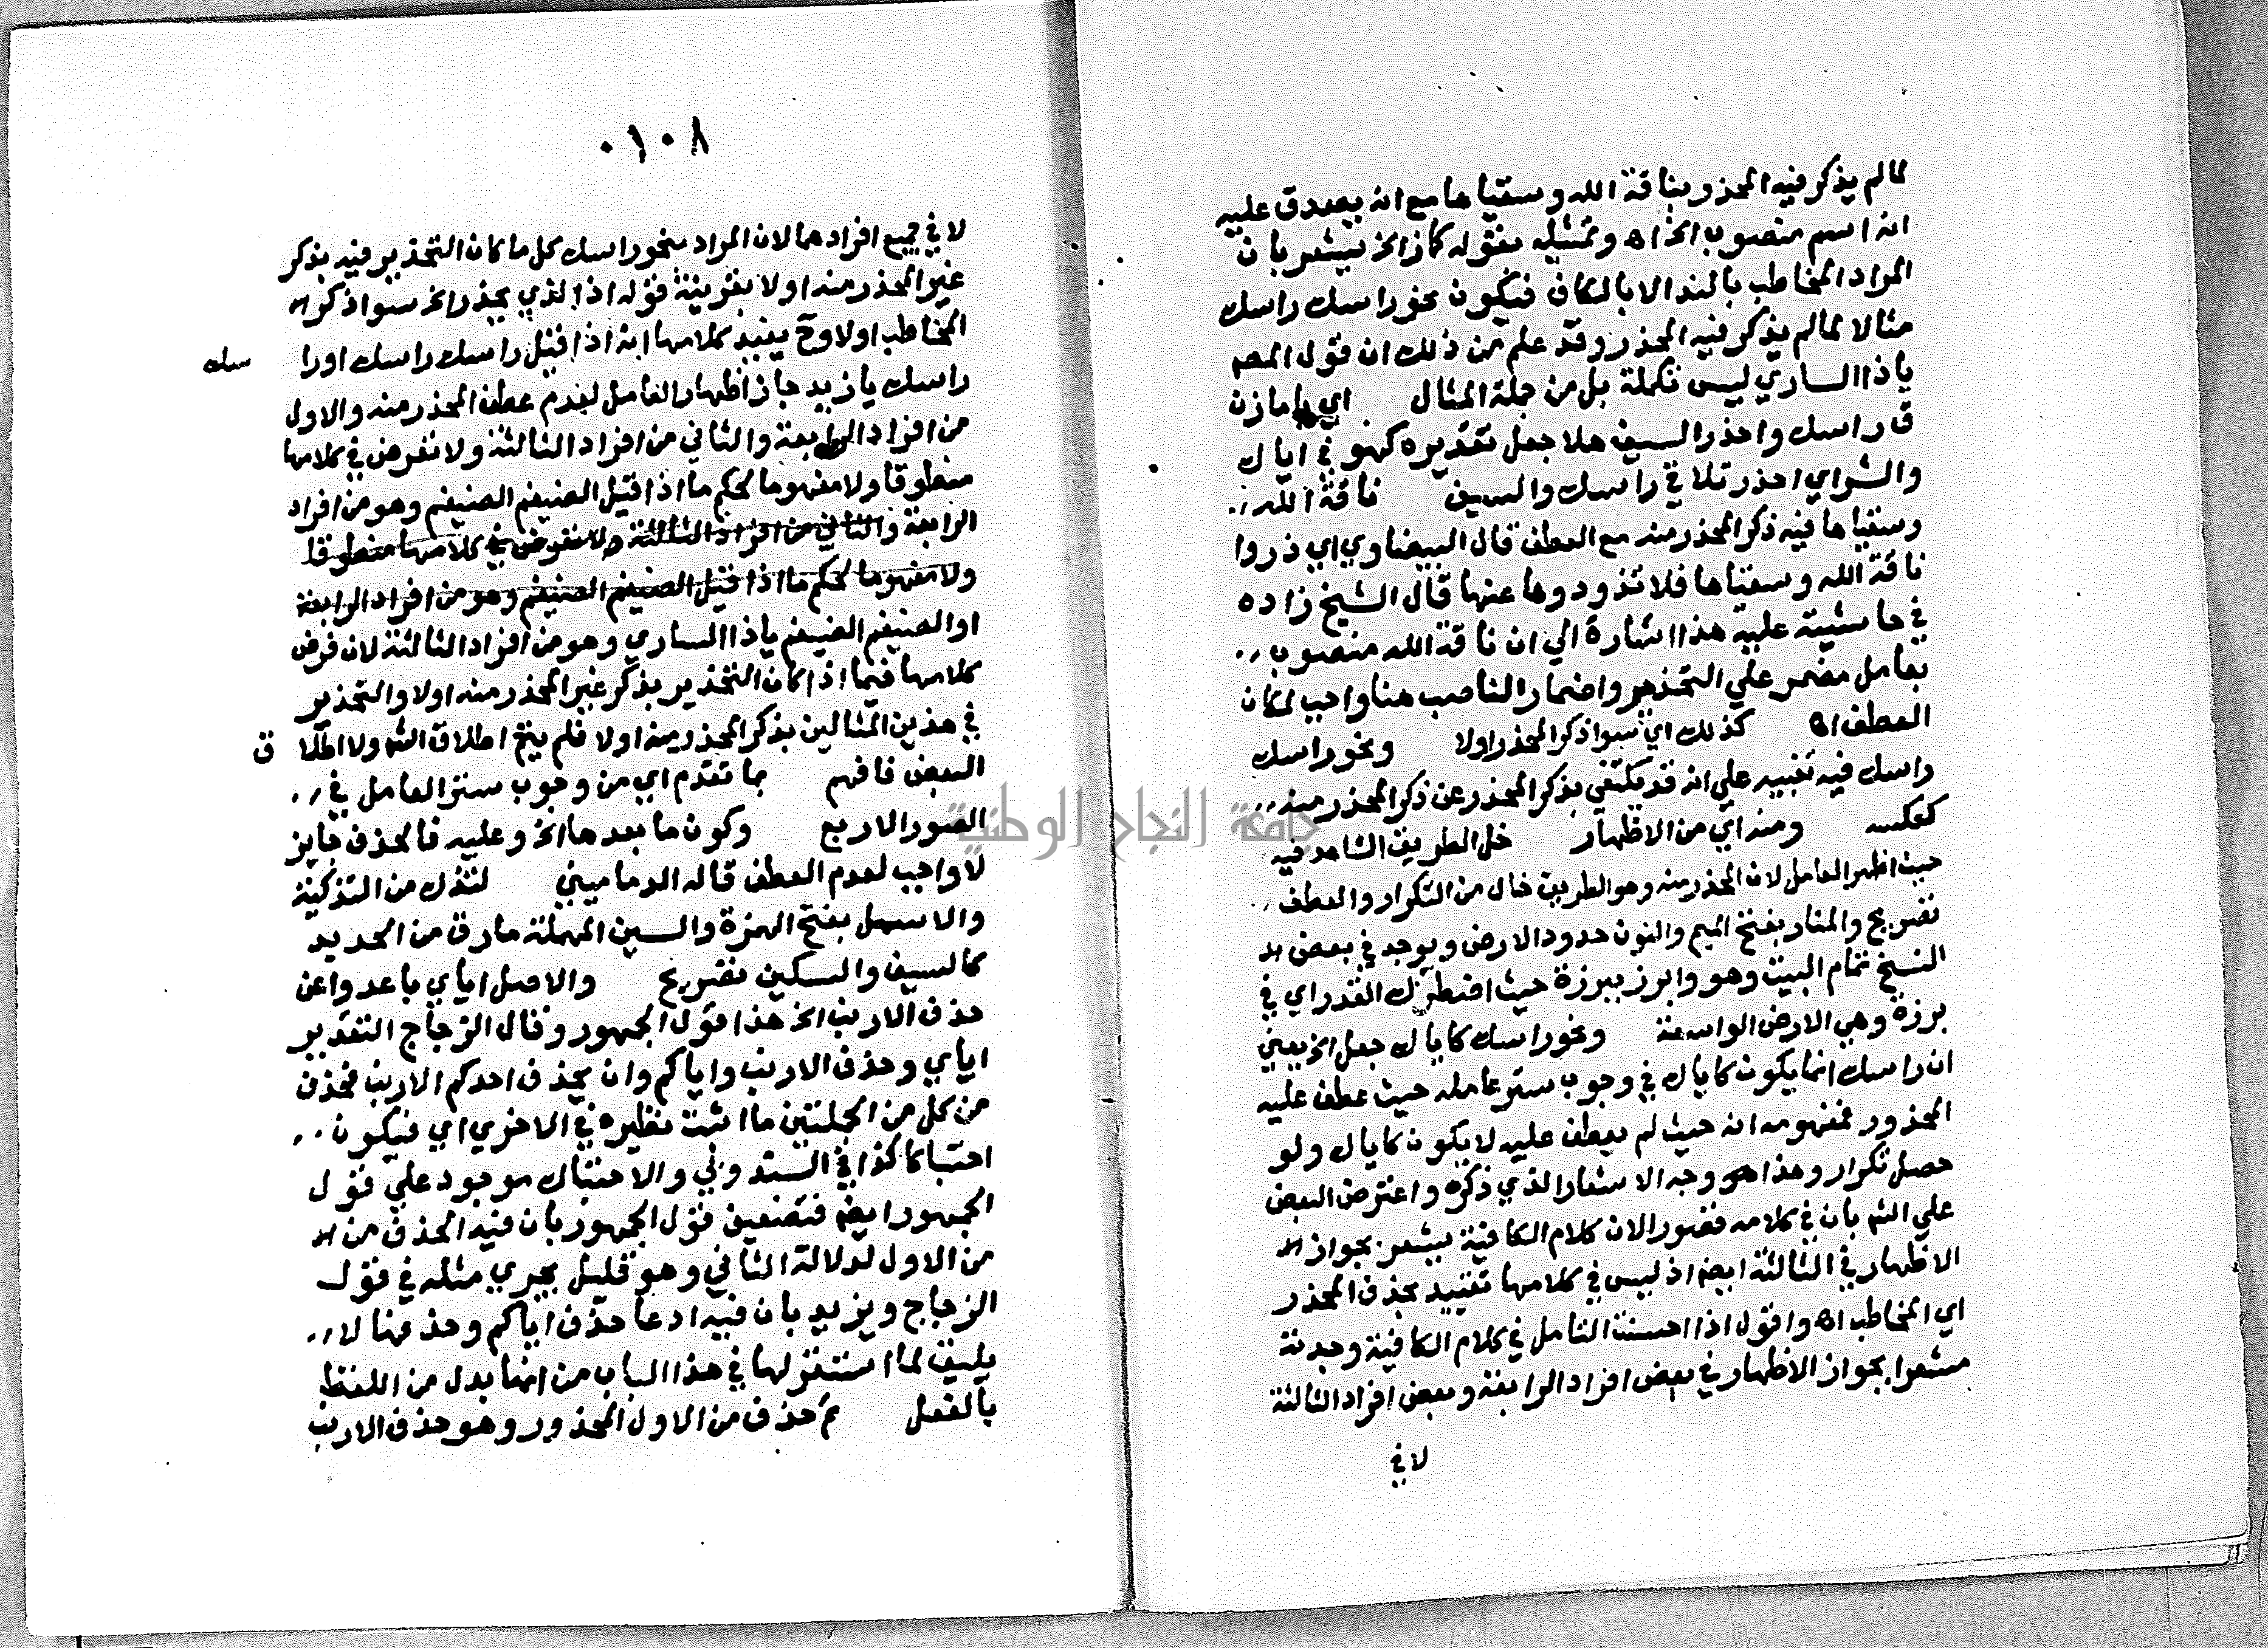 لمالم يذكر فيه المحذر بناقة الله وسقياها مع انه يصدق عليه
انه اسم منصوب الخ اه وتمثيله بقوله كمازالخ يشعر بان
المراد المخاطب بالندا لا بالكاف فيكون نحو راسك راسك
مثالا لمالم يذكر فيه المحذر وقد علم من ذلك ان قول المصم
ياذا الساري ليس تكملة بل من جملة المثال اي يامازن
ق راسك واحذر السيف هلا جعل تقديره كهو في اياك
والشراي احذر تلاقي راسك والسيف ناقة الله
وسقياها فيه ذكر المحذر منه مع العطف قال البيضاوي اي ذروا
ناقة الله وسقياها فلا تذودوها عنها قال الشيخ زاده
في حاشيته عليه هذا اشارة الي ان ناقة الله منصوب
بعامل مضمر علي التحذير واضمار الناصب هنا واجب لمكان
العطف اه كذلك اي سواذكر المحذر اولا ونحو راسك
راسك فيه تنبيه علي انه قد يكتفي بذكر المحذر عن ذكر المحذر منه
كعكسه ومنه اي من الاظهار خل الطريق الشاهد فيه
حيث اظهر العامل لان المحذر منه وهو الطريق خال من التكرار والعطف
تصريح والمنار بفتح الميم والنون حدود الارض ويوجد في بعض
النسخ تمام البيت وهو وابرز ببرزة حيث اضطرك القدر اي في
برزة وهي الارض الواسعة ونحو راسك كاياك جعل الخ يعني
ان راسك انما يكون كاياك في وجوب ستر عامله حيث عطف عليه
المحذور فمفهومه انه حيث لم يعطف عليه لا يكون كاياك ولو
حصل تكرار وهذا هو وجه الاشعار الذي ذكره واعترض البعض
علي الشم بان في كلامه قصورا لان كلام الكافية يشعر بجواز
الاظهار في الثالثة ايضم اذ ليس في كلامها تقييد بحذف المحذر
اي المخاطب اه واقول اذا احسنت التامل في كلام الكافية وجدته
مشعرا بجواز الاظهار في بعض افراد الرابعة وبعض افراد الثالثة
لا في
٠١٠٨
لا في جميع افرادهما لان المراد بنحو راسك كل ما كان التحذير فيه بذكر
غير المحذر منه اولا بقرينة قوله اذا الذي يحذر الخ سواذكر
المخاطب اولا وح يفيد كلامها انه اذا قيل راسك راسك او را سك
راسك يا زيد جاز اظهار العامل لعدم عطف المحذر منه والاول
من افراد الرابعة والثاني من افراد الثالثة ولا تعرض في كلامها
منطوقا ولا مفهوما لحكم ما اذا قيل الضيغم الضيغم وهو من افراد
الرابعة والثاني من افراد الثالثة ولا تعرض في كلامها منطوقا
ولا مفهوما لحكم ما اذا قيل الضيغم الضيغم وهو من افراد الرابعة
او الضيغم الضيغم ياذا الساري وهو من افراد الثالثة لان فرض
كلامها فيما اذا كان التحذير بذكر غير المحذر منه اولا والتحذير
في هذين المثالين بذكر المحذر منه اولا فلم يتم اطلاق الشم ولا اطلا ق
البعض فافهم بما تقدم اي من وجوب ستر العامل في
الصور الاربع وكون ما بعدها الخ وعليه فالحذف جايز
لا واجب لعدم العطف قاله الدماميني لتذك من التذكية
والاسهل بفتح الهمزة والسين المهملة مارق من الحديد
كالسيف والسكين تصريح والاصل اياي باعدوا عن
حذف الارنب الخ هذا قول الجمهور وقال الزجاج التقدير
اياي وحذف الارنب واياكم وان يحذف احدكم الارنب فحذف
من كل من الجملتين ما اثبت نظيره في الاخري اي فيكون
احتباكا كذا في السندوبي والاحتباك موجود علي قول
الجمهور ايضم فتضعيف قول الجمهور بان فيه الحذف من
من الاول لدلالة الثاني وهو قليل يجري مثله في قول
الزجاج ويزيد بان فيه ادعا حذف اياكم وحذفها لا
يليق لما استقر لها في هذا الباب من انها بدل من اللفظ
بالفعل ثم حذف من الاول المحذور وهو حذف الارنب
جامعة النجاح الوطنية